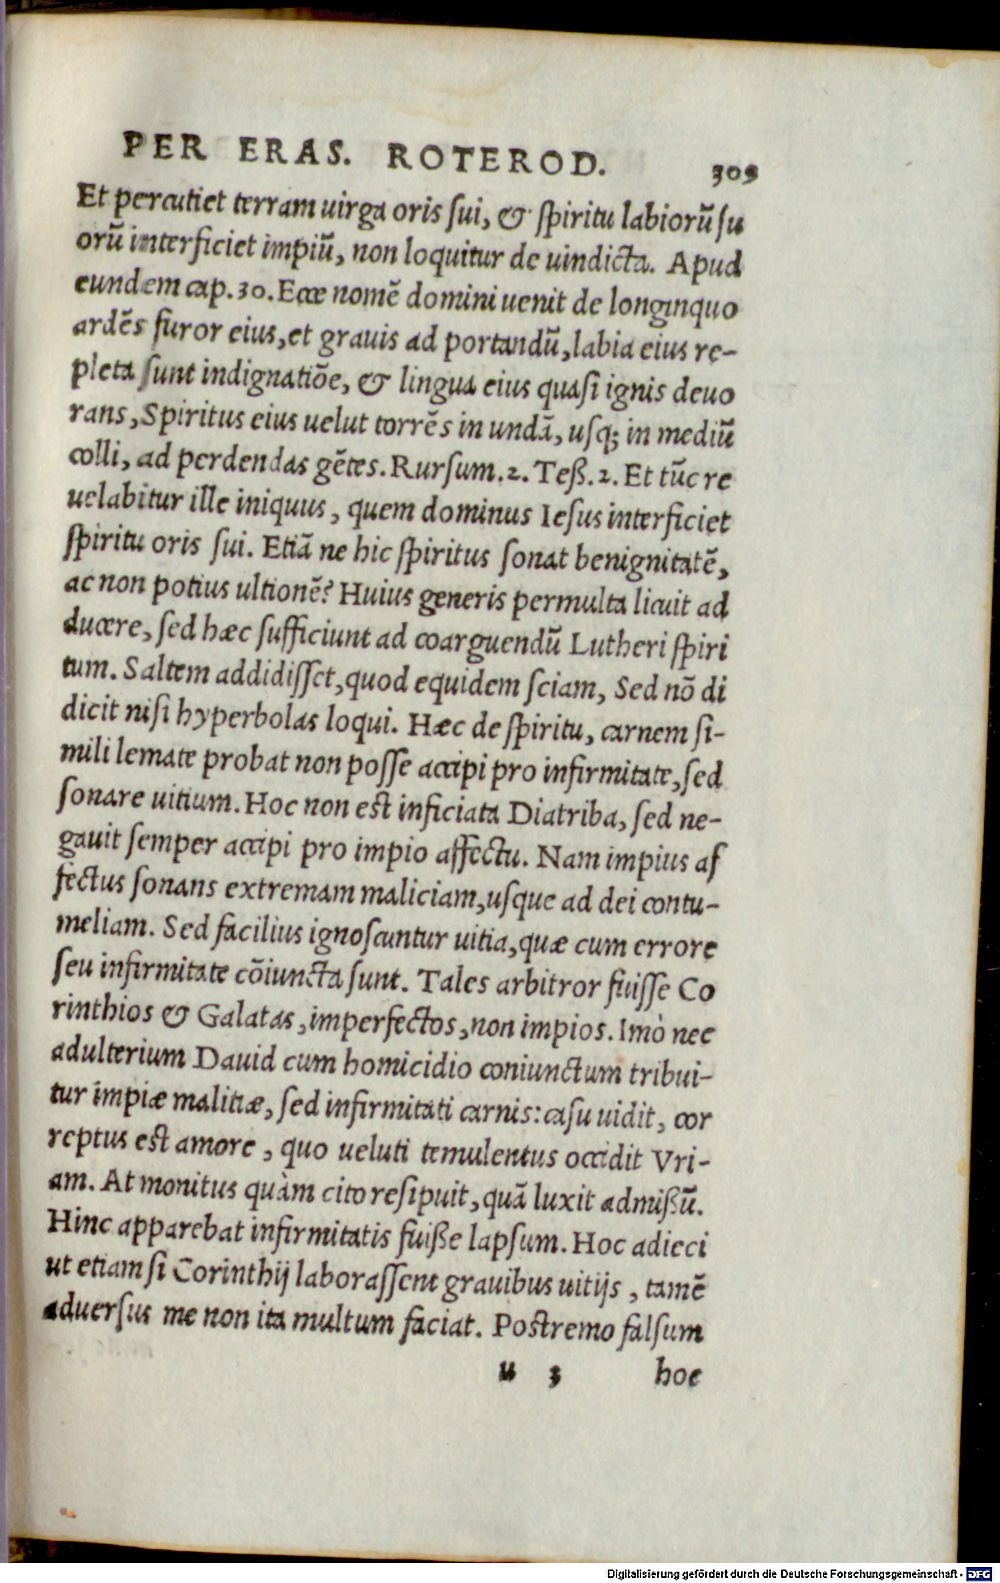 PER ERAS. ROTEROD. 309
Et percutiet terram uirga oris sui, & spiritu labiorũ su
orũ interficiet impiũ, non loquitur de uindicta. Apud
eundem cap. 30. Ecce nomẽ domini uenit de longinquo
ardẽs furor eius, et grauis ad portandũ, labia eius re-
pleta sunt indignatiõe, & lingua eius quasi ignis deuo
rans, Spiritus eius uelut torrẽs in undã, usq; in mediũ
colli, ad perdendas gẽtes. Rursum. 2. Teß. 2. Et tũc re
uelabitur ille iniquus, quem dominus Iesus interficiet
spiritu oris sui. Etiã ne hic spiritus sonat benignitatẽ,
ac non potius ultionẽ? Huius generis permulta licuit ad
ducere, sed hæc sufficiunt ad coarguendũ Lutheri spiri
tum. Saltem addidisset, quod equidem sciam, Sed nõ di
dicit nisi hyperbolas loqui. Hæc de spiritu, carnem si-
mili lemate probat non posse accipi pro infirmitate, sed
sonare uitium. Hoc non est inficiata Diatriba, sed ne-
gauit semper accipi pro impio affectu. Nam impius af
fectus sonans extremam maliciam, usque ad dei contu-
meliam. Sed facilius ignoscuntur uitia, quæ cum errore
seu infirmitate cõiuncta sunt. Tales arbitror fuisse Co
rinthios & Galatas, imperfectos, non impios. Imò nec
adulterium Dauid cum homicidio coniunctum tribui-
tur impiæ malitiæ, sed infirmitati carnis: casu uidit, cor
reptus est amore, quo ueluti temulentus occidit Vri-
am. At monitus quàm cito resipuit, quã luxit admißũ.
Hinc apparebat infirmitatis fuiße lapsum. Hoc adieci
ut etiam si Corinthij laborassent grauibus uitijs, tamẽ
aduersus me non ita multum faciat. Postremo falsum
u 3 hoc
Digitalisierung gefördert durch die Deutsche Forschungsgemeinschaft - DFG